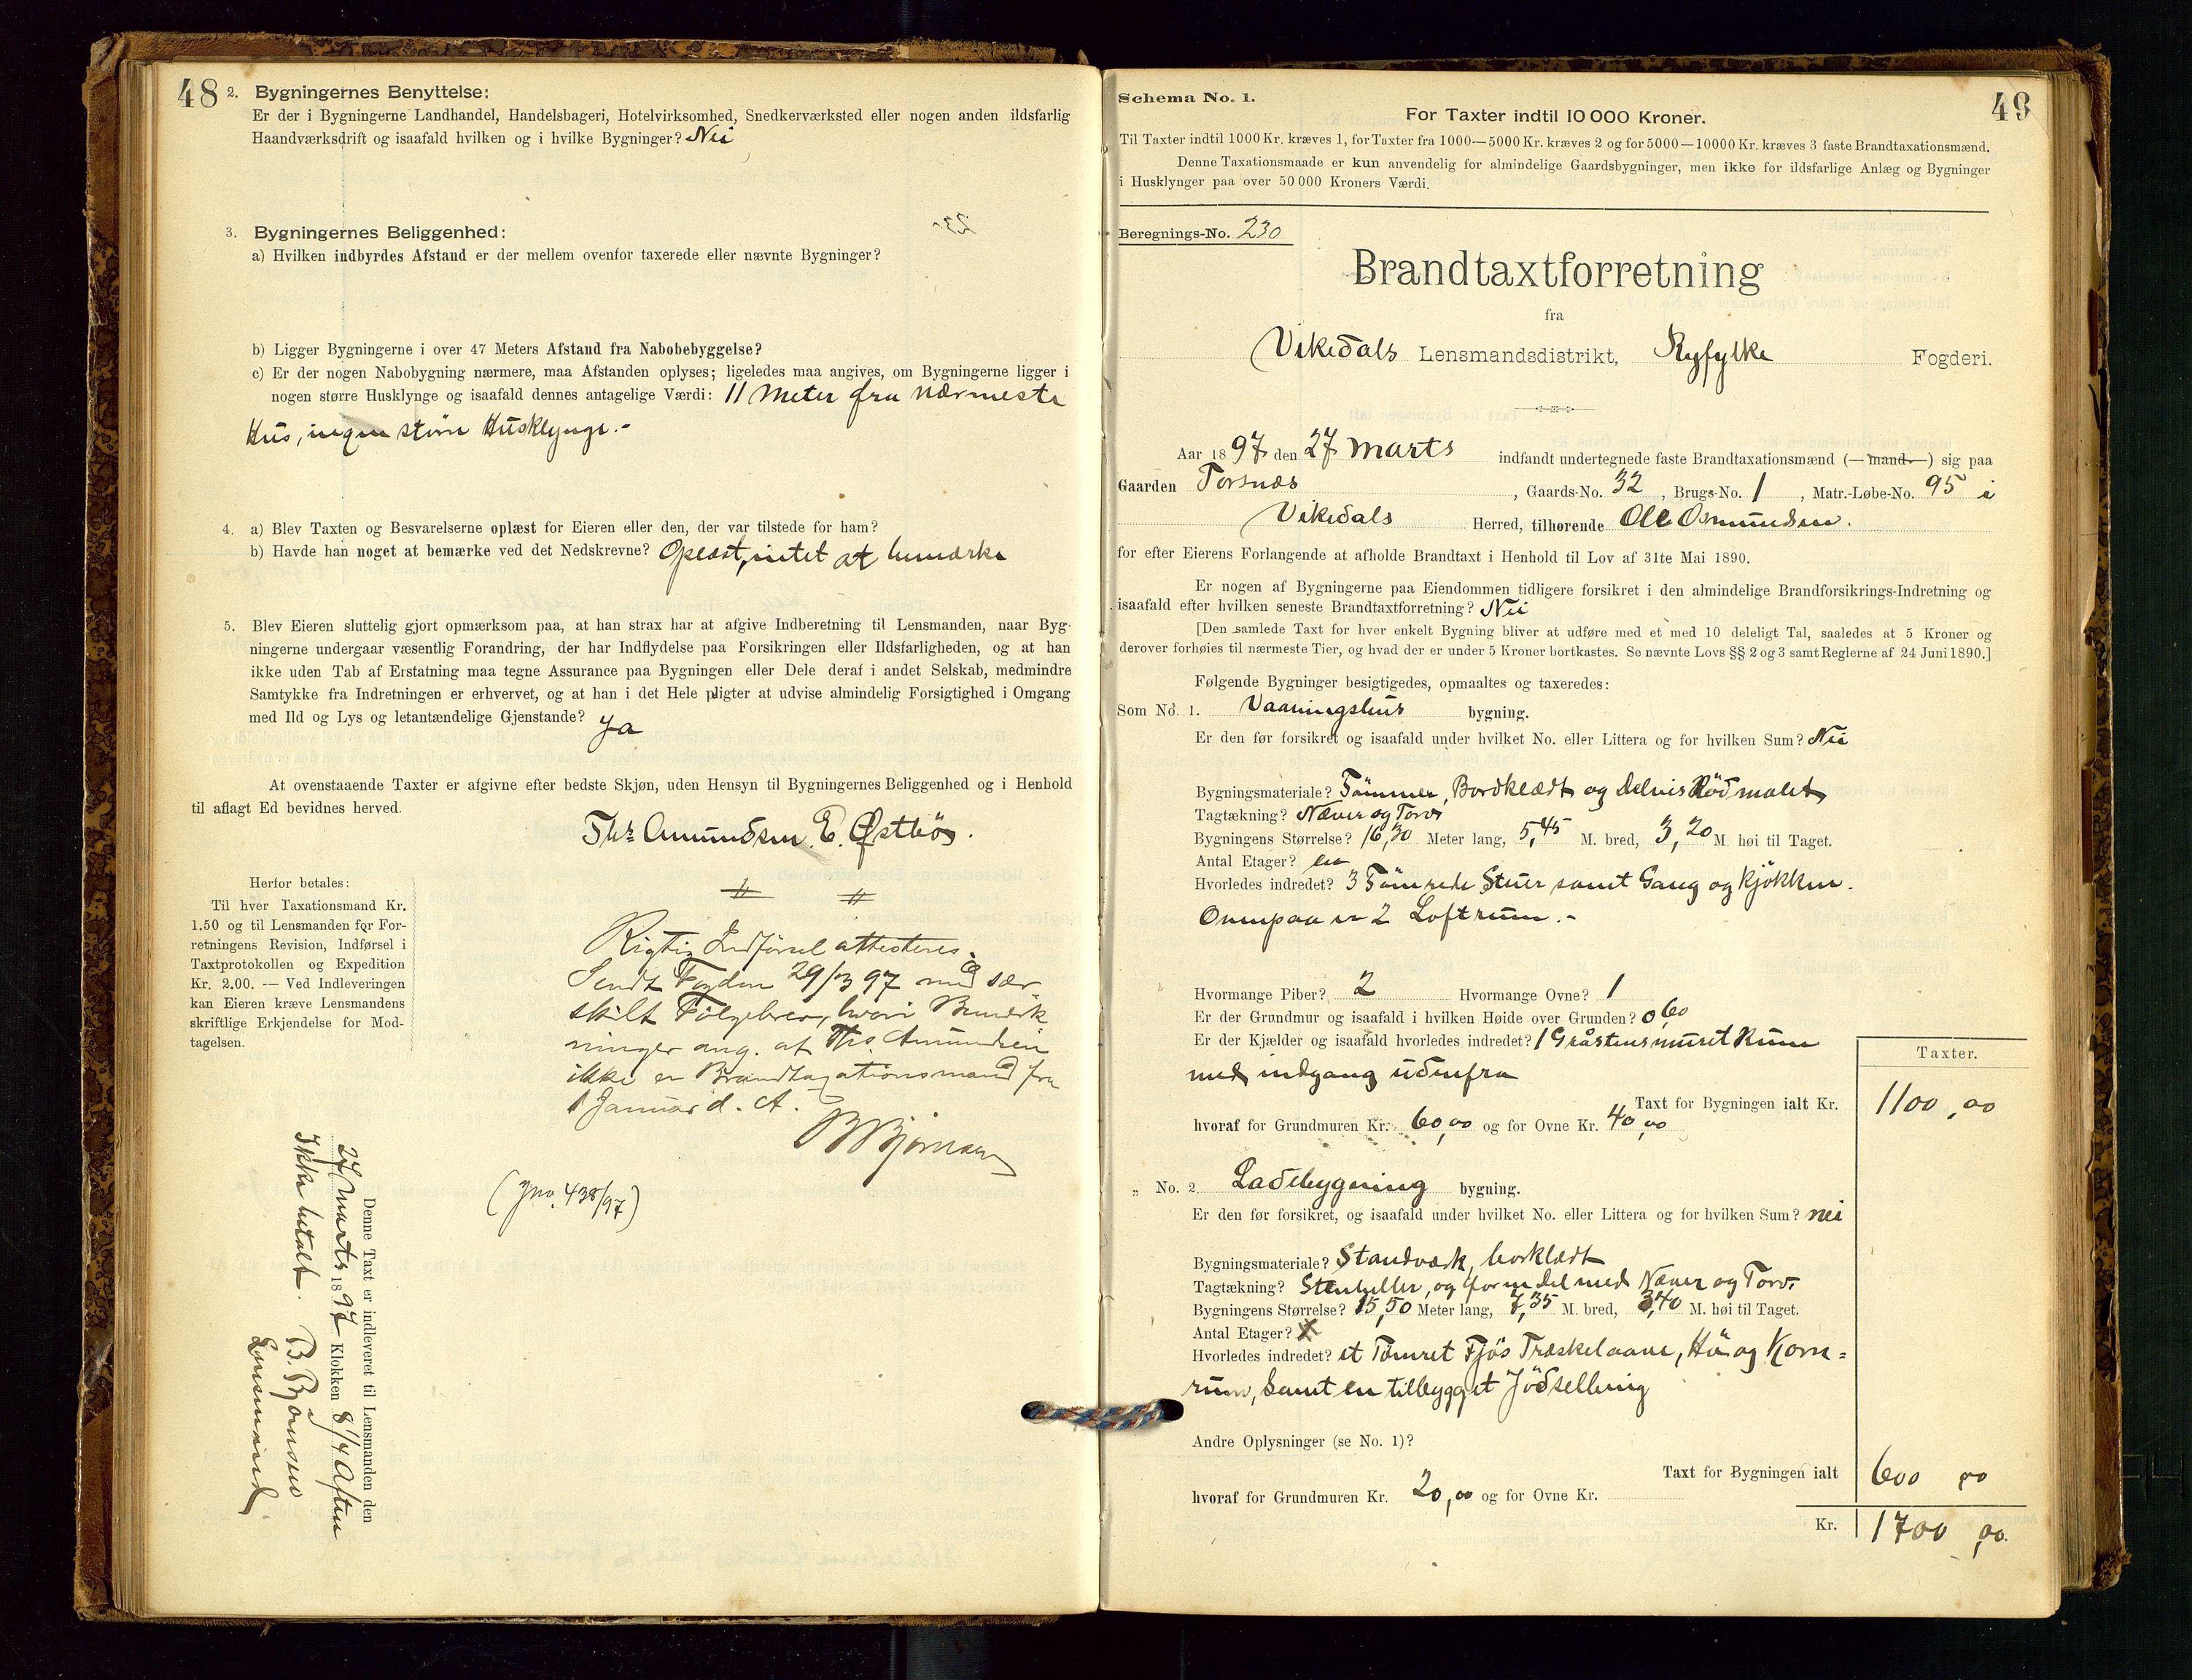 48
2. Bygningernes Benyttelse:
Er der i Bygningerne Landhandel, Handelsbageri, Hotelvirksomhed, Snedkerværksted eller nogen anden ildsfarlig
Haandværksdrift og isaafald hvilken og i hvilke Bygninger? Nei
3. Bygningernes Beliggenhed:
a) Hvilken indbyrdes Afstand er der mellem ovenfor taxerede eller nævnte Bygninger?
b) Ligger Bygningerne i over 47 Meters Afstand fra Nabobebyggelse?
c) Er der nogen Nabobygning nærmere, maa Afstanden oplyses; ligeledes maa angives, om Bygningerne ligger i
nogen større Husklynge og isaafald dennes antagelige Værdi: 11 Meter fra nærmeste
Hus, ingen större Husklynge.-
4. a) Blev Taxten og Besvarelserne oplæst for Eieren eller den, der var tilstede for ham?
b) Havde han noget at bemærke ved det Nedskrevne? Oplæst, intet at bemærke
5. Blev Eieren sluttelig gjort opmærksom paa, at han strax har at afgive Indberetning til Lensmanden, naar Byg-
ningerne undergaar væsentlig Forandring, der har Indflydelse paa Forsikringen eller Ildsfarligheden, og at han
ikke uden Tab af Erstatning maa tegne Assurance paa Bygningen eller Dele deraf i andet Selskab, medmindre
Samtykke fra Indretningen er erhvervet, og at han i det Hele pligter at udvise almindelig Forsigtighed i Omgang
med Ild og Lys og letantændelige Gjenstande? Ja
At ovenstaaende Taxter er afgivne efter bedste Skjøn, uden Hensyn til Bygningernes Beliggenhed og i Henhold
til aflagt Ed bevidnes herved.
Ths Amundsen. E. Østbös.
Herfor betales:
Til hver Taxationsmand Kr.
1.50 og til Lensmanden for For-
retningens Revision, Indførsel i
Taxtprotokollen og Expedition
Kr. 2.00. — Ved Indleveringen
kan Eieren kræve Lensmandens
skriftlige Erkjendelse for Mod-
tagelsen.
Rigtig Indförsel attesteres.
Sendt Fogden 29/3 97 med sær
skilt Fölgebrev, hvori Bemærk
ninger ang. at Ths. Amundsen
ikke er Brandtaxationsmand fra
1 Januar d. A.
B Bjørnsen
(Jno. 438/97)
Denne Taxt er indleveret til Lensmanden den
27 Marts 1897 Klokken 8 1/4 Aften
Ikke betalt. B. Bjørnsen
Lensmand.
Schema No. 1.
49
For Taxter indtil 10 000 Kroner.
Til Taxter indtil 1000 Kr. kræves 1, for Taxter fra 1000—5000 Kr. kræves 2 og for 5000—10000 Kr. kræves 3 faste Brandtaxationsmænd.
Denne Taxationsmaade er kun anvendelig for almindelige Gaardsbygninger, men ikke for ildsfarlige Anlæg og Bygninger
i Husklynger paa over 50 000 Kroners Værdi.
Beregnings-No. 230
Brandtaxtforretning
fra
Vikedals Lensmandsdistrikt, Ryfylke Fogderi.
Aar 1897 den 27 Marts indfandt undertegnede faste Brandtaxationsmænd (—mand—) sig paa
Gaarden Torsnæs, Gaards-No. 32, Brugs-No. 1, Matr.-Løbe-No. 95 i
Vikedals Herred, tilhørende Ole Osmundsen.
for efter Eierens Forlangende at afholde Brandtaxt i Henhold til Lov af 31te Mai 1890.
Er nogen af Bygningerne paa Eiendommen tidligere forsikret i den almindelige Brandforsikrings-Indretning og
isaafald efter hvilken seneste Brandtaxtforretning? Nei
[Den samlede Taxt for hver enkelt Bygning bliver at udføre med et med 10 deleligt Tal, saaledes at 5 Kroner og
derover forhøies til nærmeste Tier, og hvad der er under 5 Kroner bortkastes. Se nævnte Lovs §§ 2 og 3 samt Reglerne af 24 Juni 1890.]
Følgende Bygninger besigtigedes, opmaaltes og taxeredes:
Som No. 1. Vaaningshus bygning.
Er den før forsikret og isaafald under hvilket No. eller Littera og for hvilken Sum? Nei
Bygningsmateriale? Tömmer, Bordklædt og Delvis Rödmalet
Tagtækning? Næver og Torv
Bygningens Størrelse? 16,30 Meter lang, 5,45 M. bred, 3,20 M. høi til Taget.
Antal Etager? en
Hvorledes indredet? 3 Tömrede Stuer samt Gang og kjökken.
Ovenpaa er 2 Loftrum.-
Hvormange Piber? 2 Hvormange Ovne? 1
Er der Grundmur og isaafald i hvilken Høide over Grunden? 0,60
Er der Kjælder og isaafald hvorledes indredet? 1 Gråstensmuret Rum
med indgang udenfra
Taxter.
Taxt for Bygningen ialt Kr. 1100,00
hvoraf for Grundmuren Kr. 60,00 og for Ovne Kr. 40,00
„ No. 2 Ladebygning bygning.
Er den før forsikret, og isaafald under hvilket No. eller Littera og for hvilken Sum? nei
Bygningsmateriale? Standværk, borklædt
Tagtækning? Stenheller, og for en del med Næver og Torv.
Bygningens Størrelse? 15,50 Meter lang, 7,35 M. bred, 3,40 M. høi til Taget.
Antal Etager?
Hvorledes indredet? et Tömret Fjös Træskelaave, Hö og Korn=
rum, Samt en tilbygget
Andre Oplysninger (se No. 1)?
Taxt for Bygningen ialt 600 00
hvoraf for Grundmuren Kr. 20,00 og for Ovne Kr.
Kr. 1700,00.